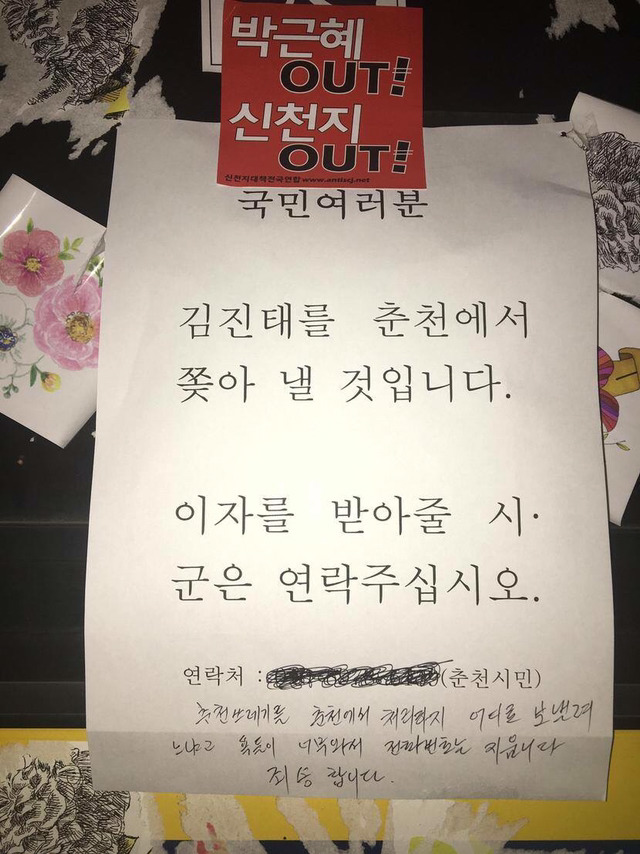 박근혜
OUT!
신천지
OUT!
신천지대책전국연합 www.antiscj.net
국민여러분
김진태를 춘천에서
쫓아 낼 것입니다.
이자를 받아줄 시·
군은 연락주십시오.
연락처 : (춘천시민)
춘천쓰레기를 춘천에서 처리하지 어디로 보낼려
느냐고 욕들이 너무와서 전화번호는 지웁니다
죄송합니다.